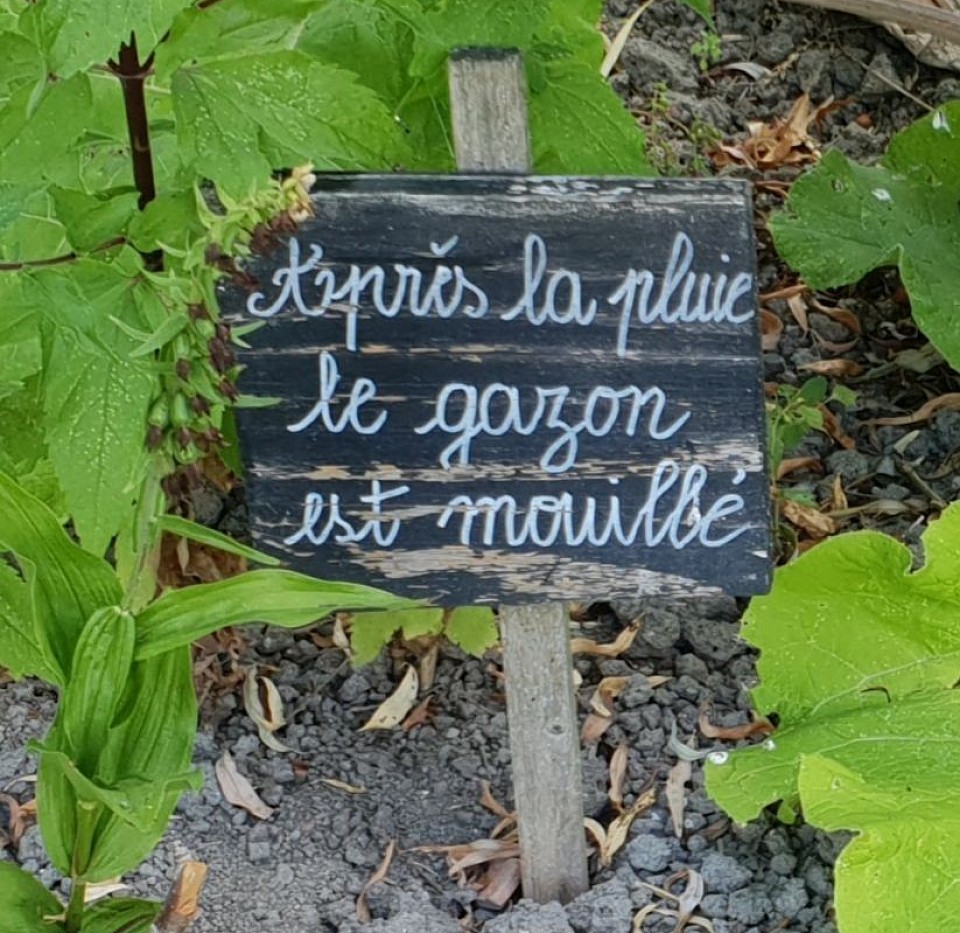 Après la pluie
le gazon
est mouillé